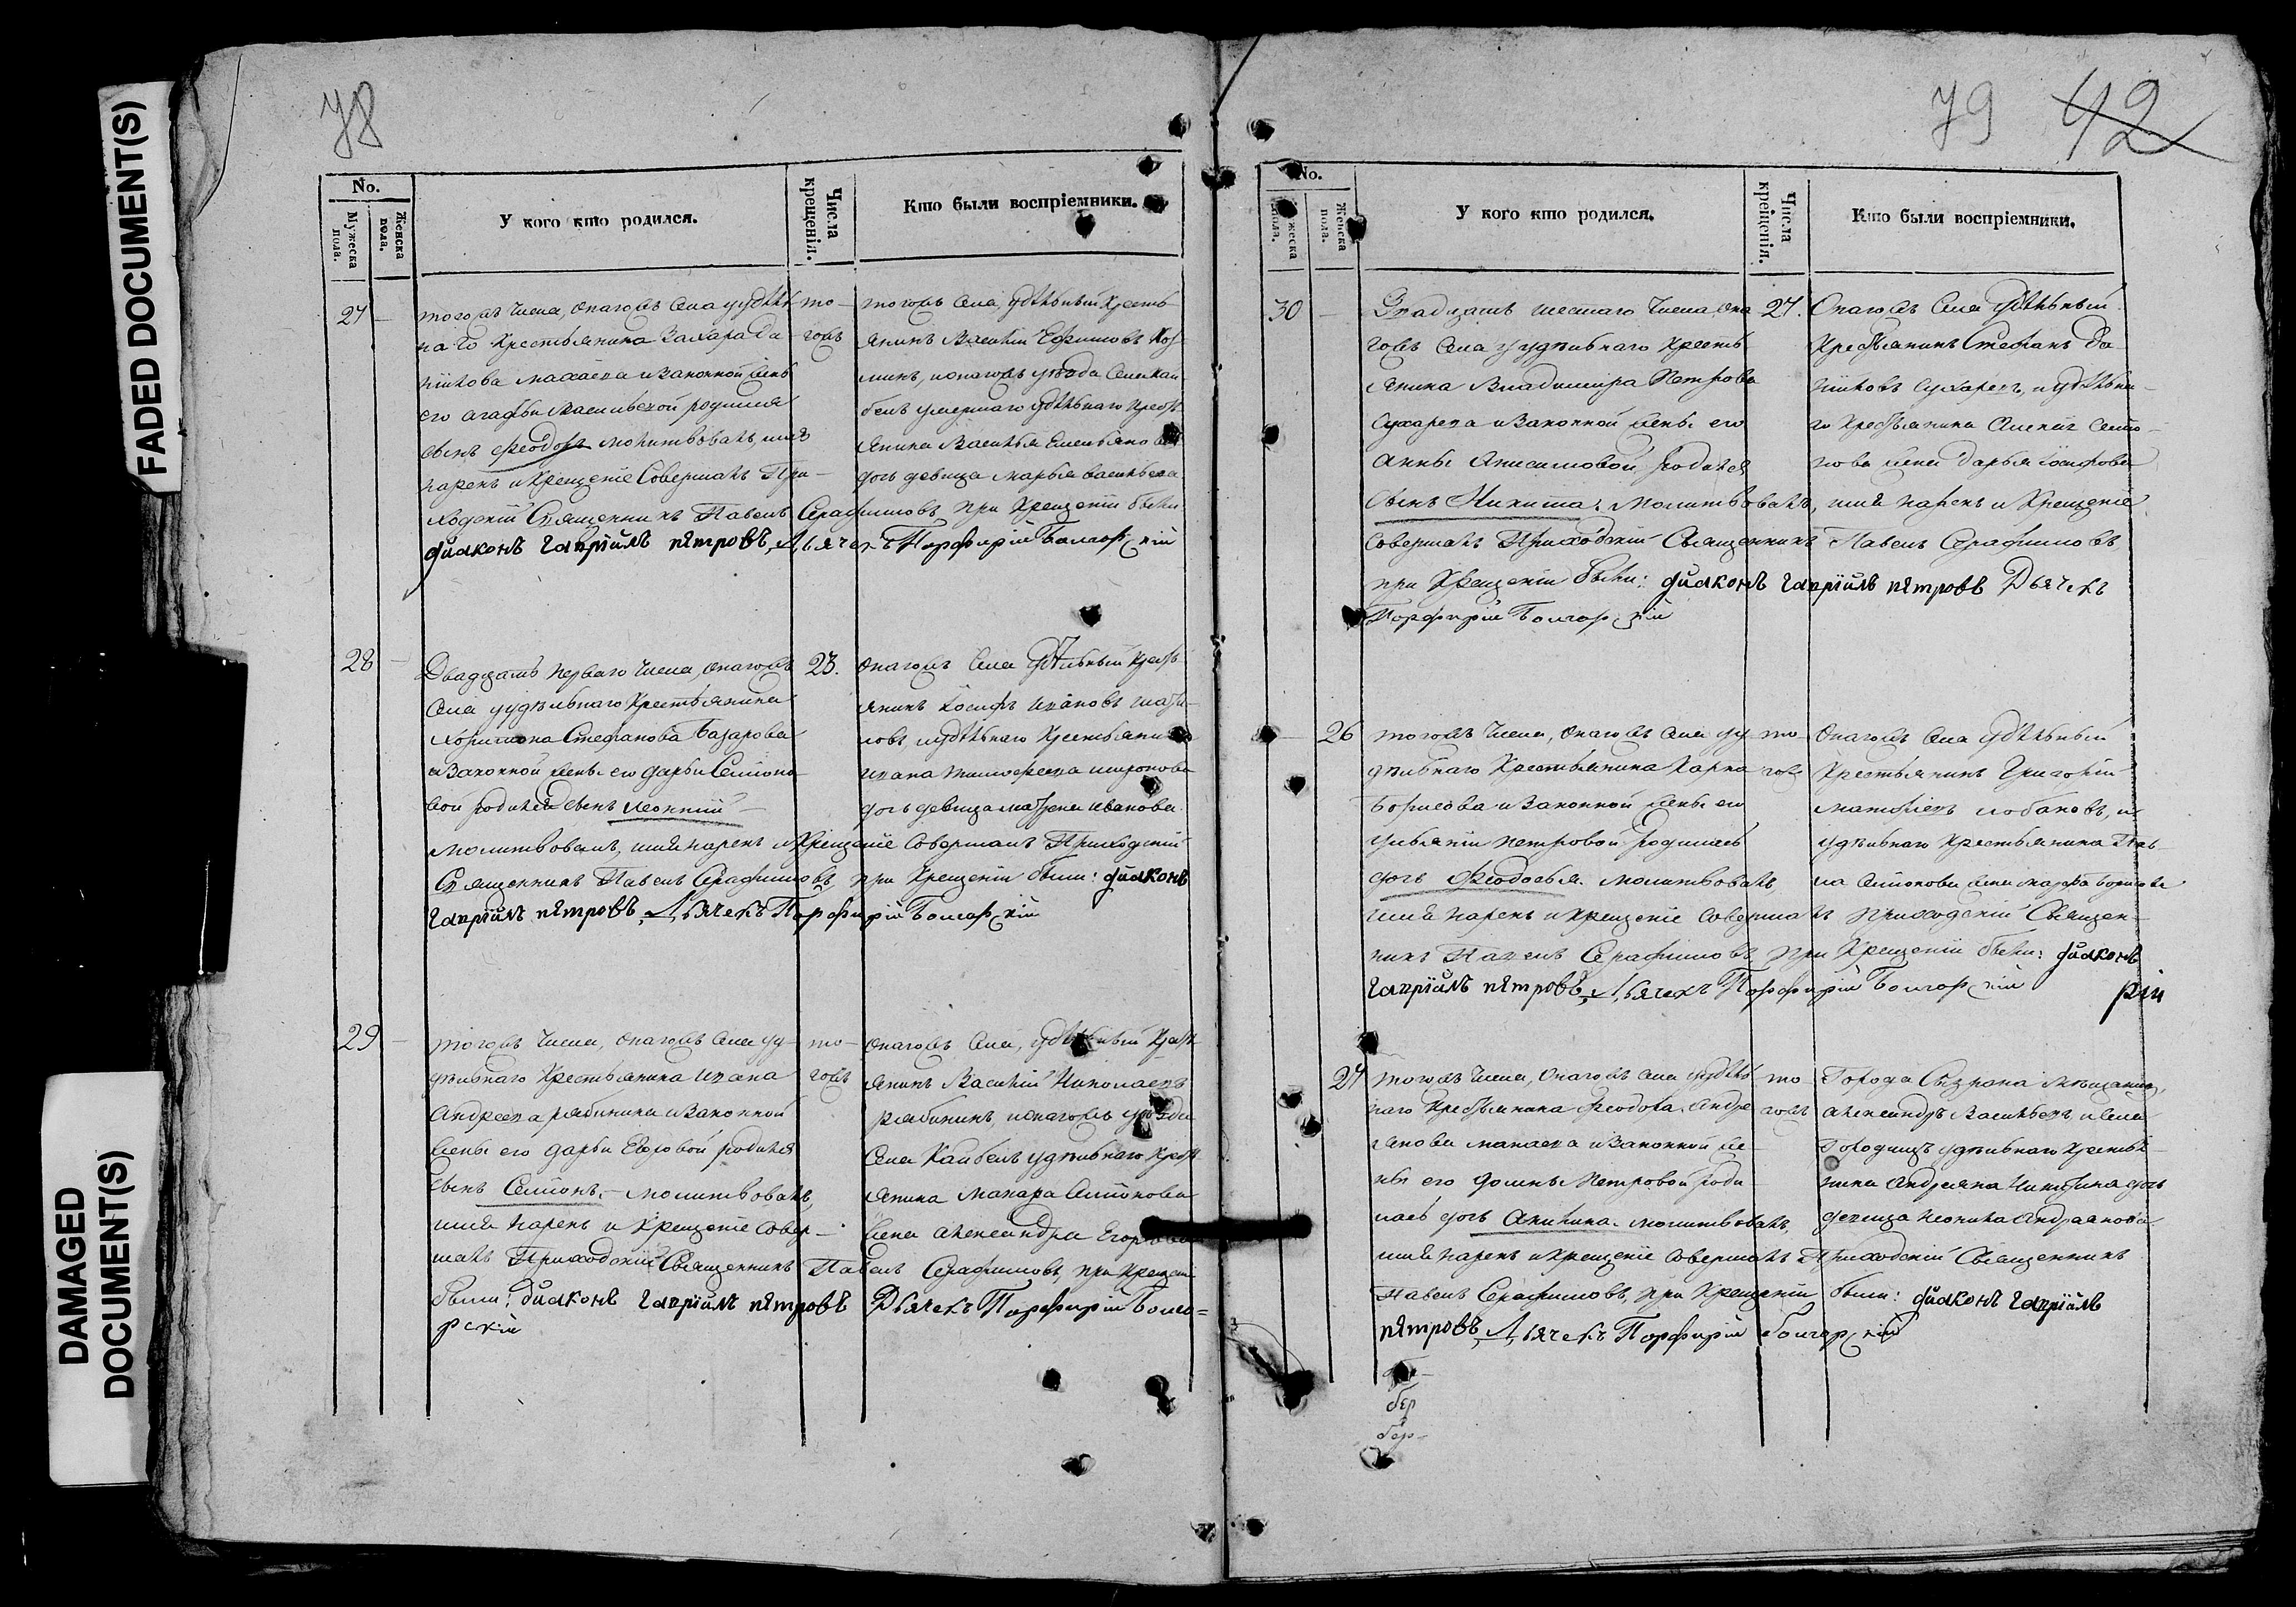 FADED DOCUMENT(S)
DAMAGED
DOCUMENT(S)
78
No.
Мужеска пола.
Женска пола.
У кого кто родился.
Числа крещенія.
Кто были воспріемники.
27
тогожъ числа, онагожъ села у удѣль-
наго крестьянина Захара Да-
нилова макаева и законной жены
его агафьи Васильевой родился
сынъ Феодоръ молитвовалъ, имя
нарекъ и крещеніе совершалъ При-
ходскій Священникъ Павелъ Серафимовъ, при крещеніи были
діаконъ гавріилъ пѣтровъ, Дьячекъ Порфирій Болгарскій
то-
гожъ
тогожъ села, удѣльный кресть-
янинъ Василій Ефимовъ
минъ, и онагожъ уѣзда села Кай-
белъ умершаго удѣльнаго крест-
янина Василья
дочь девица марья васильева
28
Двадцать перваго числа, онагожъ
села у удѣльнаго крестьянина
Харитона Стефанова Базарова
и законной жены его дарьи Семіоно-
вой родился сынъ леонтій
молитвовалъ, имя нарекъ и крещеніе совершалъ Приходскій
Священникъ Павелъ Серафимовъ, при крещеніи были: діаконъ
гавріилъ пѣтровъ, Дьячекъ Порфирій Болгарскій
23.
онагожъ села удѣльный крест-
янинъ Іосифъ ивановъ
ловъ, и удѣльнаго крестьянина
ивана тимофеева миронова
дочь девица матрена иванова.
29
тогожъ числа, онагожъ села у у-
дѣльнаго крестьянина ивана
андреева рябинина и законной
жены его дарьи Егоровой родился
сынъ Семіонъ. молитвовалъ,
имя нарекъ и крещеніе совер-
шалъ Приходскій Священникъ Павелъ Серафимовъ, при крещеніи
были: діаконъ гавріилъ пѣтровъ Дьячекъ Порфирій Болга=
рскій
то-
гожъ
онагожъ села, удѣльный крест-
янинъ Василій Николаевъ
рябининъ, и онагожъ уѣзда
села Кайбелъ удѣльнаго крест-
янина Макара Семіонова
жена александра Егорова
79 42
No.
Мужеска пола.
Женска пола.
У кого кто родился.
Числа крещенія.
Кто были воспріемники.
30
Двадцать шестаго числа, она-
гожъ села у удѣльнаго кресть-
янина Владимира Петрова
Сухарева и законной жены его
анны анисимовой родился
сынъ Никита: молитвовалъ, имя нарекъ и крещеніе
совершалъ Приходскій Священникъ Павелъ Серафимовъ
при крещеніи были: діаконъ гавріилъ пѣтровъ Дьячекъ
Порфирій Болгарскій
27.
Онагожъ села удѣльный
крестьянинъ Стефанъ Да-
ниловъ Сухаревъ, и удѣльна-
го крестьянина
жена дарья іосифова
26
тогожъ числа, онагожъ села у у-
дѣльнаго крестьянина Карпа
Борисова и законной жены его
ульяніи петровой родилась
дочь Феодосья. молитвовалъ,
имя нарекъ и крещеніе совершалъ приходскій Священ-
никъ Павелъ Серафимовъ при крещеніи были: діаконъ
гавріилъ пѣтровъ, Дьячекъ Порфирій Болгарскій
рій
то-
гожъ
Онагожъ села удѣльный
крестьянинъ Григорій
матвѣевъ лобановъ, и
удѣльнаго крестьянина Пав-
ла Семіонова жена марфа борисова
27
тогожъ числа, онагожъ села у удѣль-
наго крестьянина Феодора андре-
янова макаева и законной же-
ны его домны Петровой роди-
лась дочь акилина. молитвовалъ,
имя нарекъ и крещеніе совершалъ Приходскій Священникъ
Павелъ Серафимовъ, при крещеніи были: діаконъ гавріилъ
пѣтровъ, Дьячекъ Порфирій Болгарскій
то-
гожъ
Города Сызрана мѣщанинъ,
александръ Васильевъ и села
Городищъ удѣльнаго крестья-
нина андреяна Никитина дочь
девица неонила андреянова
бер
бер-